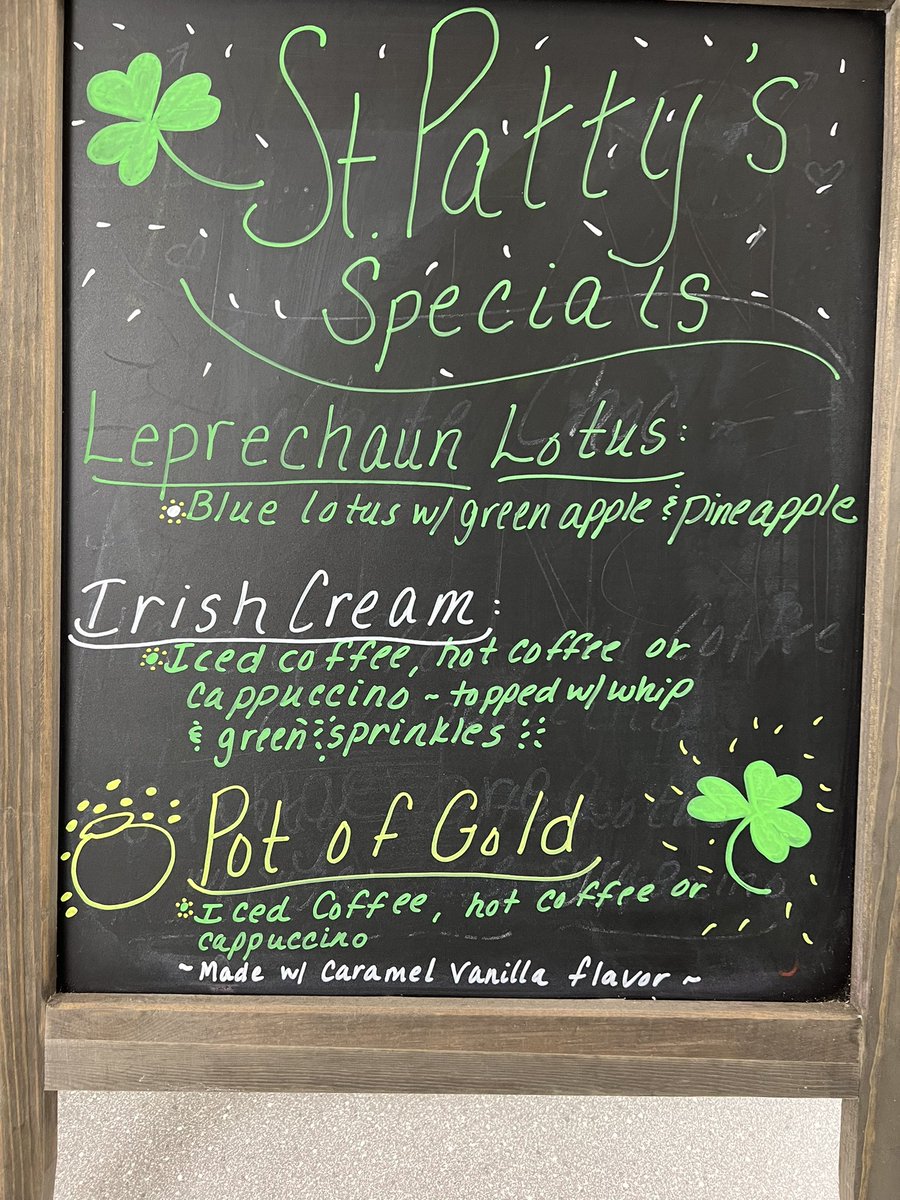 St. Patty's
Specials
Leprechaun Lotus:
Blue lotus w/ green apple & pineapple
Irish Cream:
Iced coffee, hot coffee or
cappuccino ~ topped w/ whip
& green sprinkles
Pot of Gold
Iced Coffee, hot coffee or
cappuccino
~ Made w/ Caramel Vanilla flavor ~